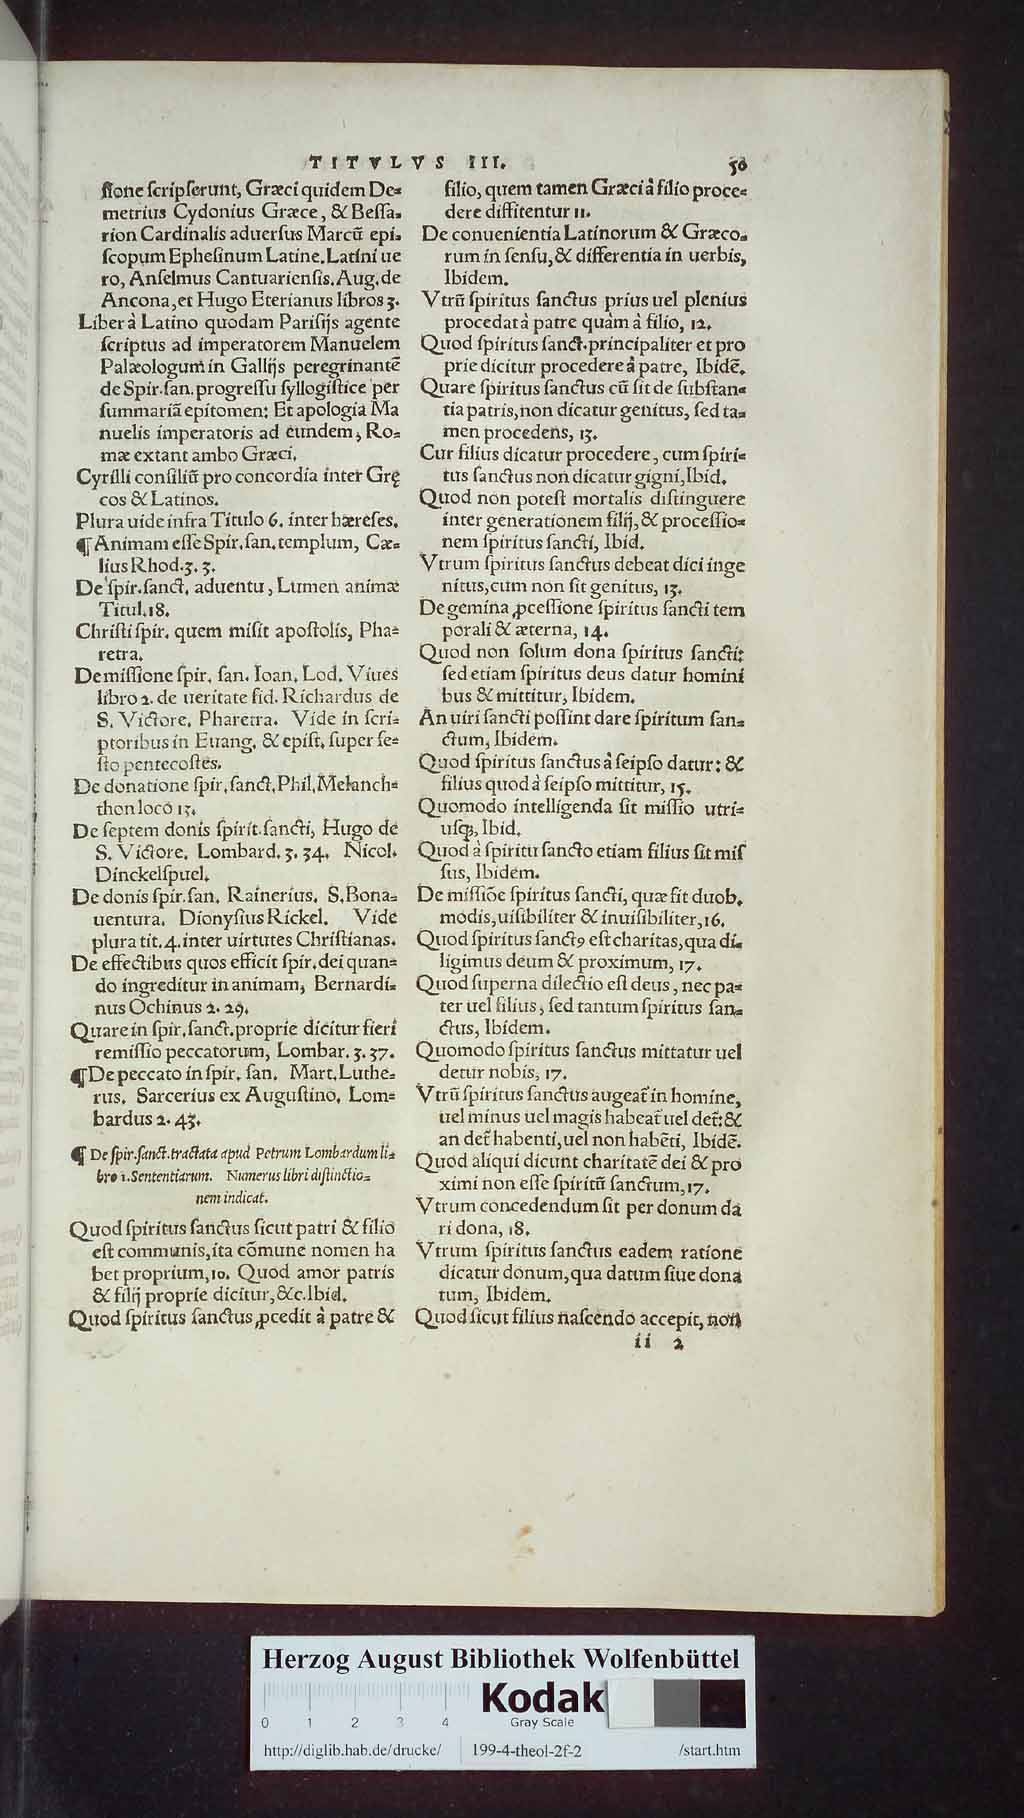 TITVLVS III. 50
ſione ſcripſerunt, Græci quidem De=
metrius Cydonius Græce, & Beſſa=
rion Cardinalis aduerſus Marcū epi=
ſcopum Epheſinum Latine. Latini ue
ro, Anſelmus Cantuarienſis. Aug. de
Ancona, et Hugo Eterianus libros 3.
Liber à Latino quodam Pariſijs agente
ſcriptus ad imperatorem Manuelem
Palæologum in Gallijs peregrinantẽ
de Spir. ſan. progreſſu ſyllogiſtice per
ſummariā epitomen: Et apologia Ma
nuelis imperatoris ad eundem, Ro=
mæ extant ambo Græci.
Cyrilli conſiliū pro concordia inter Grę
cos & Latinos.
Plura uide infra Titulo 6. inter hæreſes.
¶ Animam eſſe Spir. ſan. templum, Cæ=
lius Rhod. 3. 3.
De ſpir. ſanct. aduentu, Lumen animæ
Titul. 18.
Chriſti ſpir. quem miſit apoſtolis, Pha=
retra.
De miſſione ſpir. ſan. Ioan. Lod. Viues
libro 2. de ueritate fid. Richardus de
S. Victore. Pharetra. Vide in ſcri=
ptoribus in Euang. & epiſt. ſuper fe=
ſto pentecoſtes.
De donatione ſpir. ſanct. Phil. Melanch=
thon loco 13.
De ſeptem donis ſpirit. ſancti, Hugo de
S. Victore. Lombard. 3. 34. Nicol.
Dinckelſpuel.
De donis ſpir. ſan. Rainerius. S. Bona=
uentura. Dionyſius Rickel. Vide
plura tit. 4. inter uirtutes Chriſtianas.
De effectibus quos efficit ſpir. dei quan=
do ingreditur in animam, Bernardi=
nus Ochinus 2. 29.
Quare in ſpir. ſanct. proprie dicitur fieri
remiſſio peccatorum, Lombar. 3. 37.
¶ De peccato in ſpir. ſan. Mart. Luthe=
rus. Sarcerius ex Auguſtino. Lom=
bardus 2. 43.
¶ De ſpir. ſanct. tractata apud Petrum Lombardum li=
bro 1. Sententiarum. Numerus libri diſtinctio=
nem indicat.
Quod ſpiritus ſanctus ſicut patri & filio
eſt communis, ita cōmune nomen ha
bet proprium, 10. Quod amor patris
& filij proprie dicitur, &c. Ibid.
Quod ſpiritus ſanctus ꝓcedit à patre &
filio, quem tamen Græci à filio proce=
dere diffitentur 11.
De conuenientia Latinorum & Græco=
rum in ſenſu, & differentia in uerbis,
Ibidem.
Vtrū ſpiritus ſanctus prius uel plenius
procedat à patre quàm à filio, 12.
Quod ſpiritus ſanct. principaliter et pro
prie dicitur procedere à patre, Ibidẽ.
Quare ſpiritus ſanctus cū ſit de ſubſtan=
tia patris, non dicatur genitus, ſed ta=
men procedens, 13.
Cur filius dicatur procedere, cum ſpiri=
tus ſanctus non dicatur gigni, Ibid.
Quod non poteſt mortalis diſtinguere
inter generationem filij, & proceſſio=
nem ſpiritus ſancti, Ibid.
Vtrum ſpiritus ſanctus debeat dici inge
nitus, cum non ſit genitus, 13.
De gemina ꝓceſſione ſpiritus ſancti tem
porali & æterna, 14.
Quod non ſolum dona ſpiritus ſancti:
ſed etiam ſpiritus deus datur homini
bus & mittitur, Ibidem.
An uiri ſancti poſſint dare ſpiritum ſan=
ctum, Ibidem.
Quod ſpiritus ſanctus à ſeipſo datur: &
filius quod à ſeipſo mittitur, 15.
Quomodo intelligenda ſit miſſio utri=
uſq;, Ibid.
Quod à ſpiritu ſancto etiam filius ſit miſ
ſus, Ibidem.
De miſſiōe ſpiritus ſancti, quæ fit duob.
modis, uiſibiliter & inuiſibiliter, 16.
Quod ſpiritus ſanctꝰ eſt charitas, qua di=
ligimus deum & proximum, 17.
Quod ſuperna dilectio eſt deus, nec pa=
ter uel filius, ſed tantum ſpiritus ſan=
ctus, Ibidem.
Quomodo ſpiritus ſanctus mittatur uel
detur nobis, 17.
Vtrū ſpiritus ſanctus augeat̃ in homine,
uel minus uel magis habeat̃ uel det̃: &
an det̃ habenti, uel non habẽti, Ibidẽ.
Quod aliqui dicunt charitatẽ dei & pro
ximi non eſſe ſpiritū ſanctum, 17.
Vtrum concedendum ſit per donum da
ri dona, 18.
Vtrum ſpiritus ſanctus eadem ratione
dicatur donum, qua datum ſiue dona
tum, Ibidem.
Quod ſicut filius naſcendo accepit, non
ii 2
Herzog August Bibliothek Wolfenbüttel
0 1 2 3 4
Kodak
Gray Scale
http://diglib.hab.de/drucke/ 199-4-theol-2f-2 /start.htm